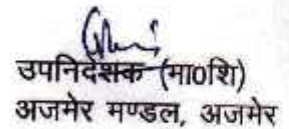 उपनिदेशक (मा०शि)
अजमेर मण्डल, अजमेर